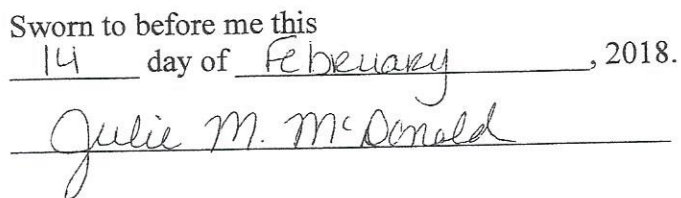 Sworn to before me this
14 day of February, 2018.
Julie M. McDonald